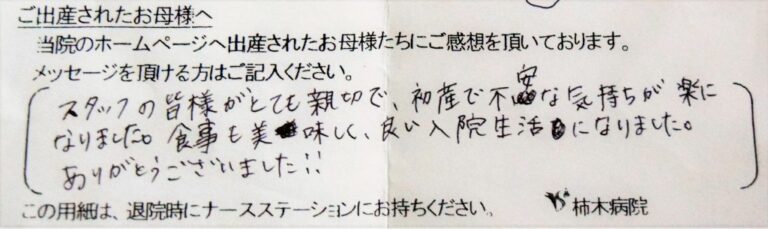 ご出産されたお母様へ
当院のホームページへ出産されたお母様たちにご感想を頂いております。
メッセージを頂ける方はご記入ください。
スタッフの皆様がとても親切で、初産で不安な気持ちが楽に
なりました。食事も美味しく、良い入院生活になりました。
ありがとうございました!!
この用紙は、退院時にナースステーションにお持ちください。 柿木病院